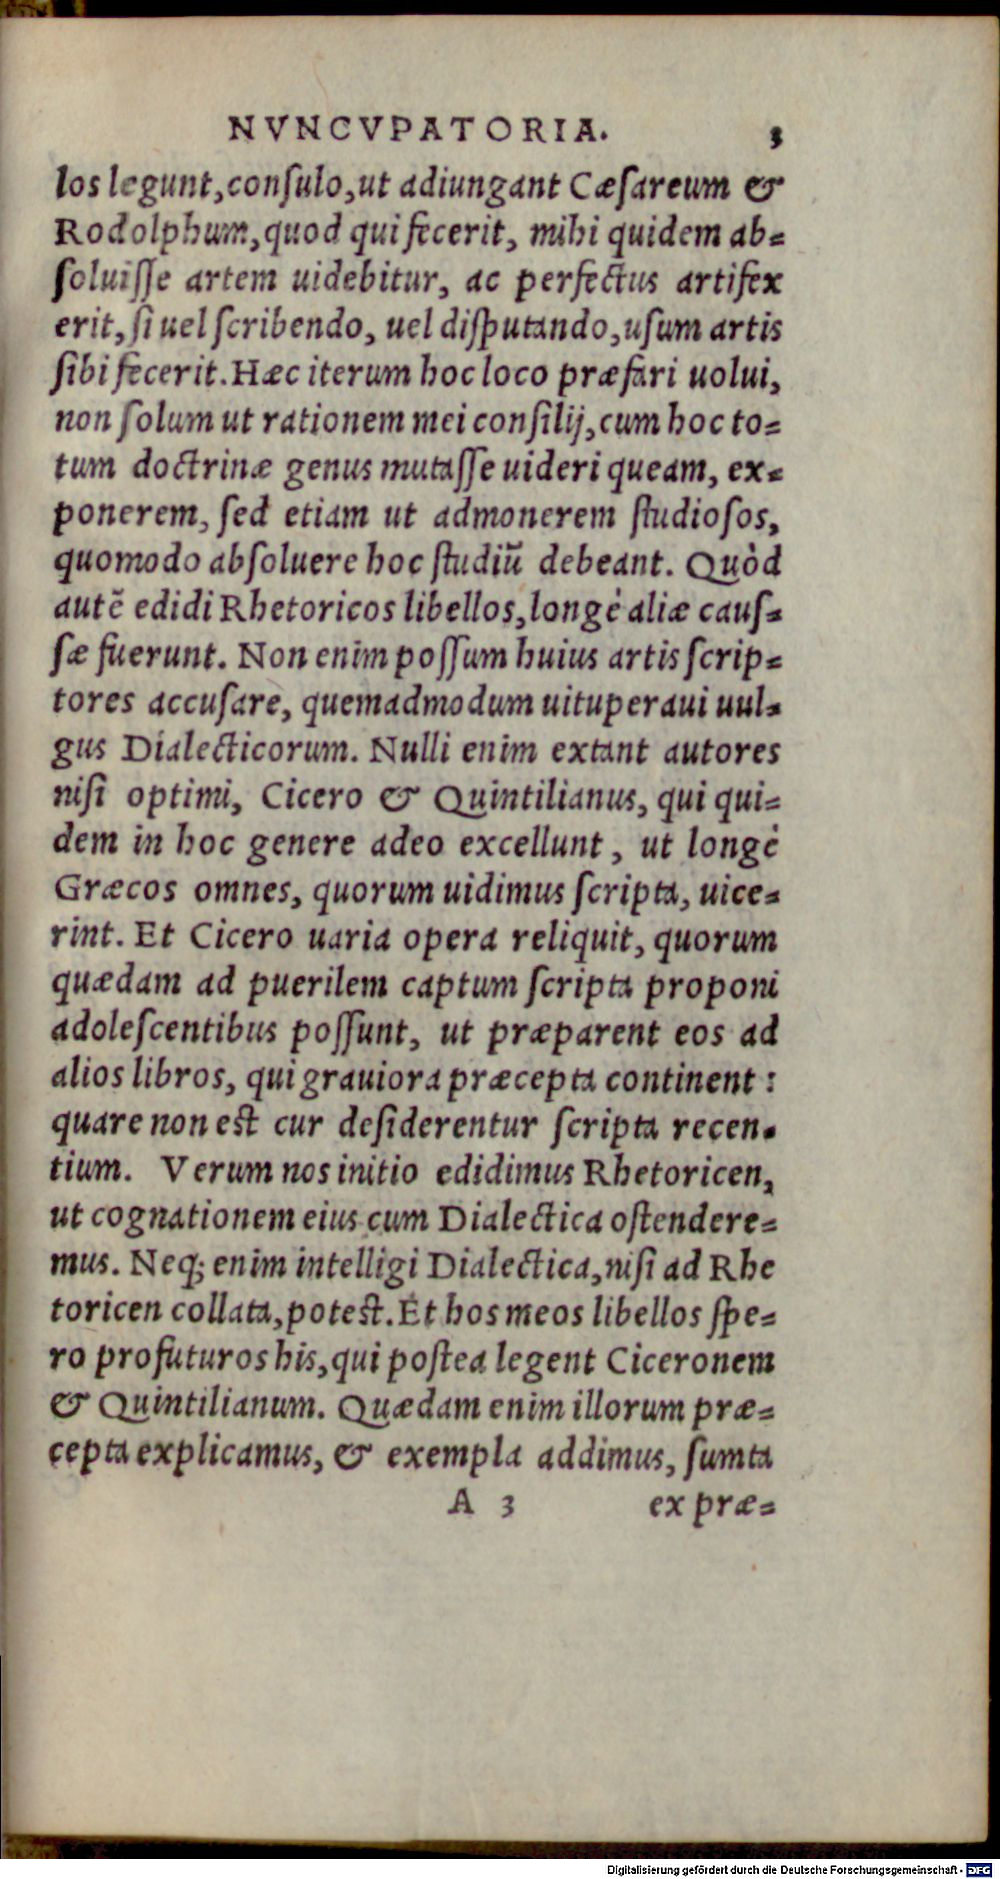 NVNCVPATORIA. 3
los legunt, consulo, ut adiungant Cæsareum &
Rodolphum, quod qui fecerit, mihi quidem ab=
soluisse artem uidebitur, ac perfectus artifex
erit, si uel scribendo, uel disputando, usum artis
sibi fecerit. Hæc iterum hoc loco præfari uolui,
non solum ut rationem mei consilij, cum hoc to=
tum doctrinæ genus mutasse uideri queam, ex=
ponerem, sed etiam ut admonerem studiosos,
quomodo absoluere hoc studiũ debeant. Quòd
autẽ edidi Rhetoricos libellos, longè aliæ caus=
sæ fuerunt. Non enim possum huius artis scrip=
tores accusare, quemadmodum uituperaui uul=
gus Dialecticorum. Nulli enim extant autores
nisi optimi, Cicero & Quintilianus, qui qui=
dem in hoc genere adeo excellunt, ut longè
Græcos omnes, quorum uidimus scripta, uice=
rint. Et Cicero uaria opera reliquit, quorum
quædam ad puerilem captum scripta proponi
adolescentibus possunt, ut præparent eos ad
alios libros, qui grauiora præcepta continent:
quare non est cur desiderentur scripta recen=
tium. Verum nos initio edidimus Rhetoricen,
ut cognationem eius cum Dialectica ostendere=
mus. Neq; enim intelligi Dialectica, nisi ad Rhe
toricen collata, potest. Et hos meos libellos spe=
ro profuturos his, qui postea legent Ciceronem
& Quintilianum. Quædam enim illorum præ=
cepta explicamus, & exempla addimus, sumta
A 3 ex præ=
Digitalisierung gefördert durch die Deutsche Forschungsgemeinschaft - DFG